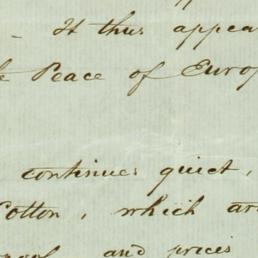 - It thus appea
e Peace of Europ
continues quiet,
Cotton, which ar
and prices